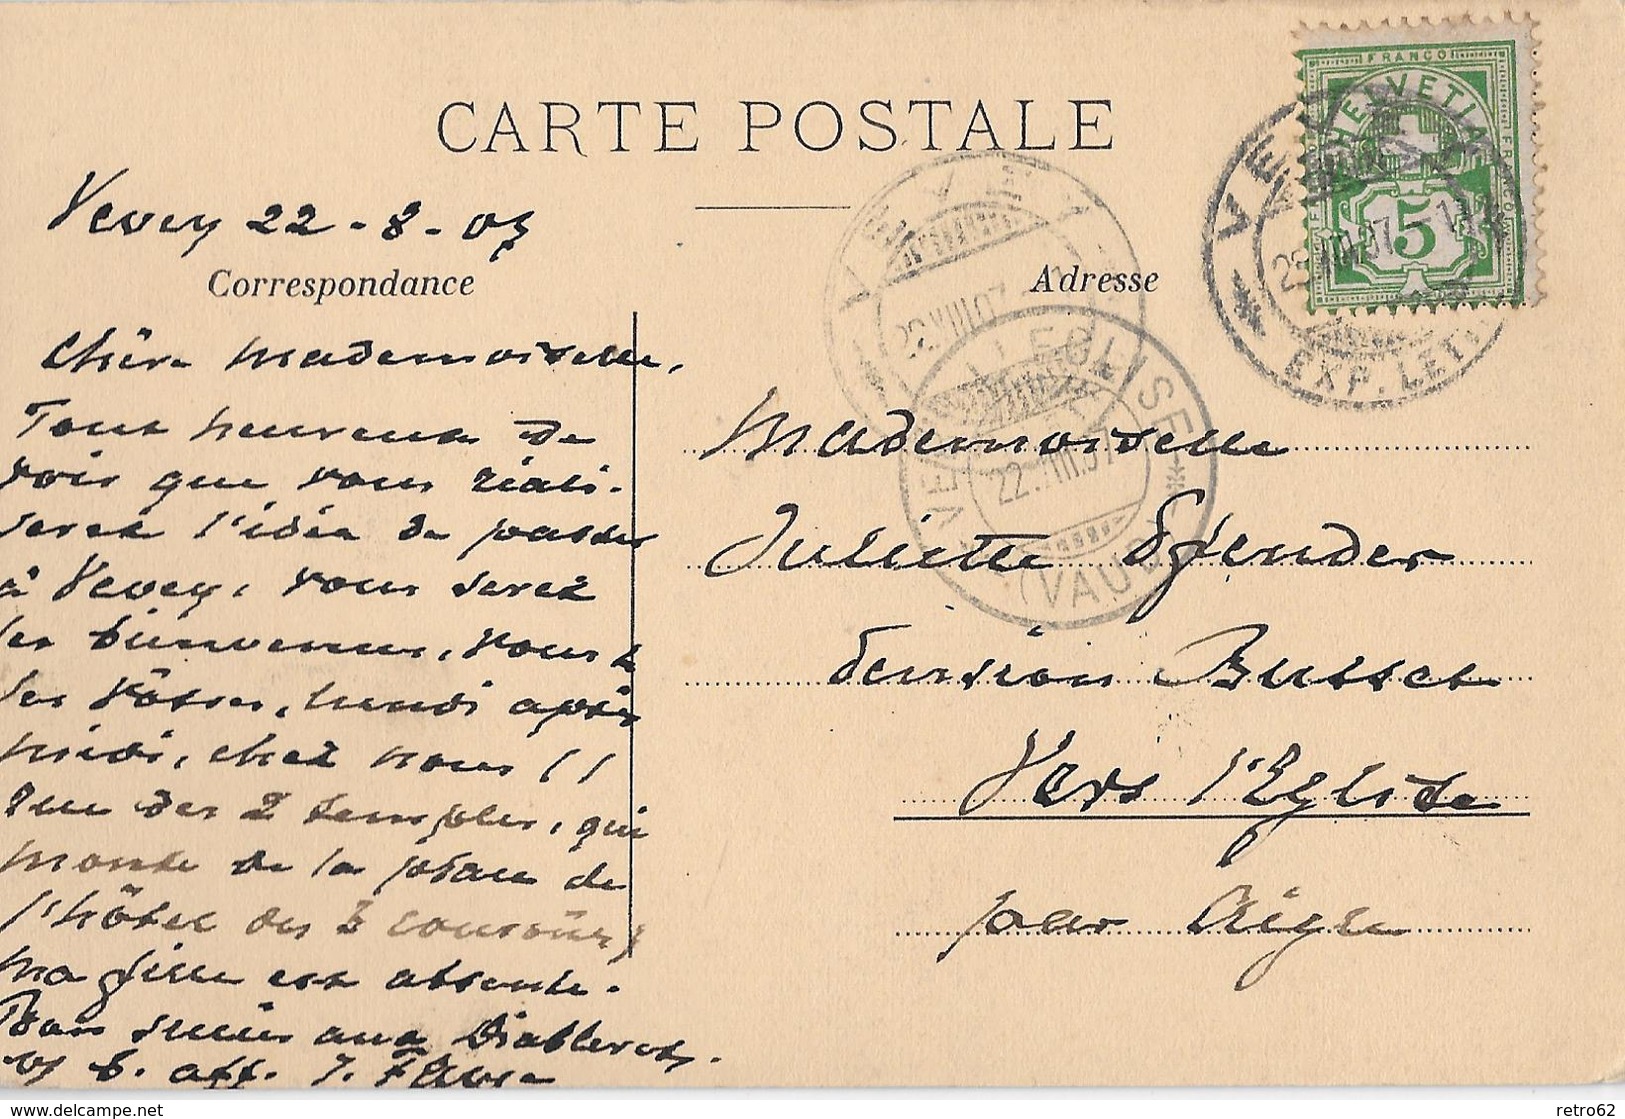 CARTE POSTALE
Vevey 22-8-07
Correspondance
Chère Mademoiselle,
Tout heureux de
voir que vous réali-
serez l'idée de passer
à Vevey, vous serez
les bienvenus, vous &
les vôtres, lundi après
midi, chez nous
rue des 2 temples, qui
monte de la place de
l'hôtel des 3 couronnes
ma fille est absente.
aux Diablerets.
aff. J.
Adresse
Mademoiselle
Juliette
Pension Busset
Vers l'Eglise
par Aigle
FRANCO
HELVETIA
5
VEVEY
EXP. LET.
VEVEY
22.VIII.07
VERS L'EGLISE
22.VIII.07
(VAUD)
delcampe.net
retro62